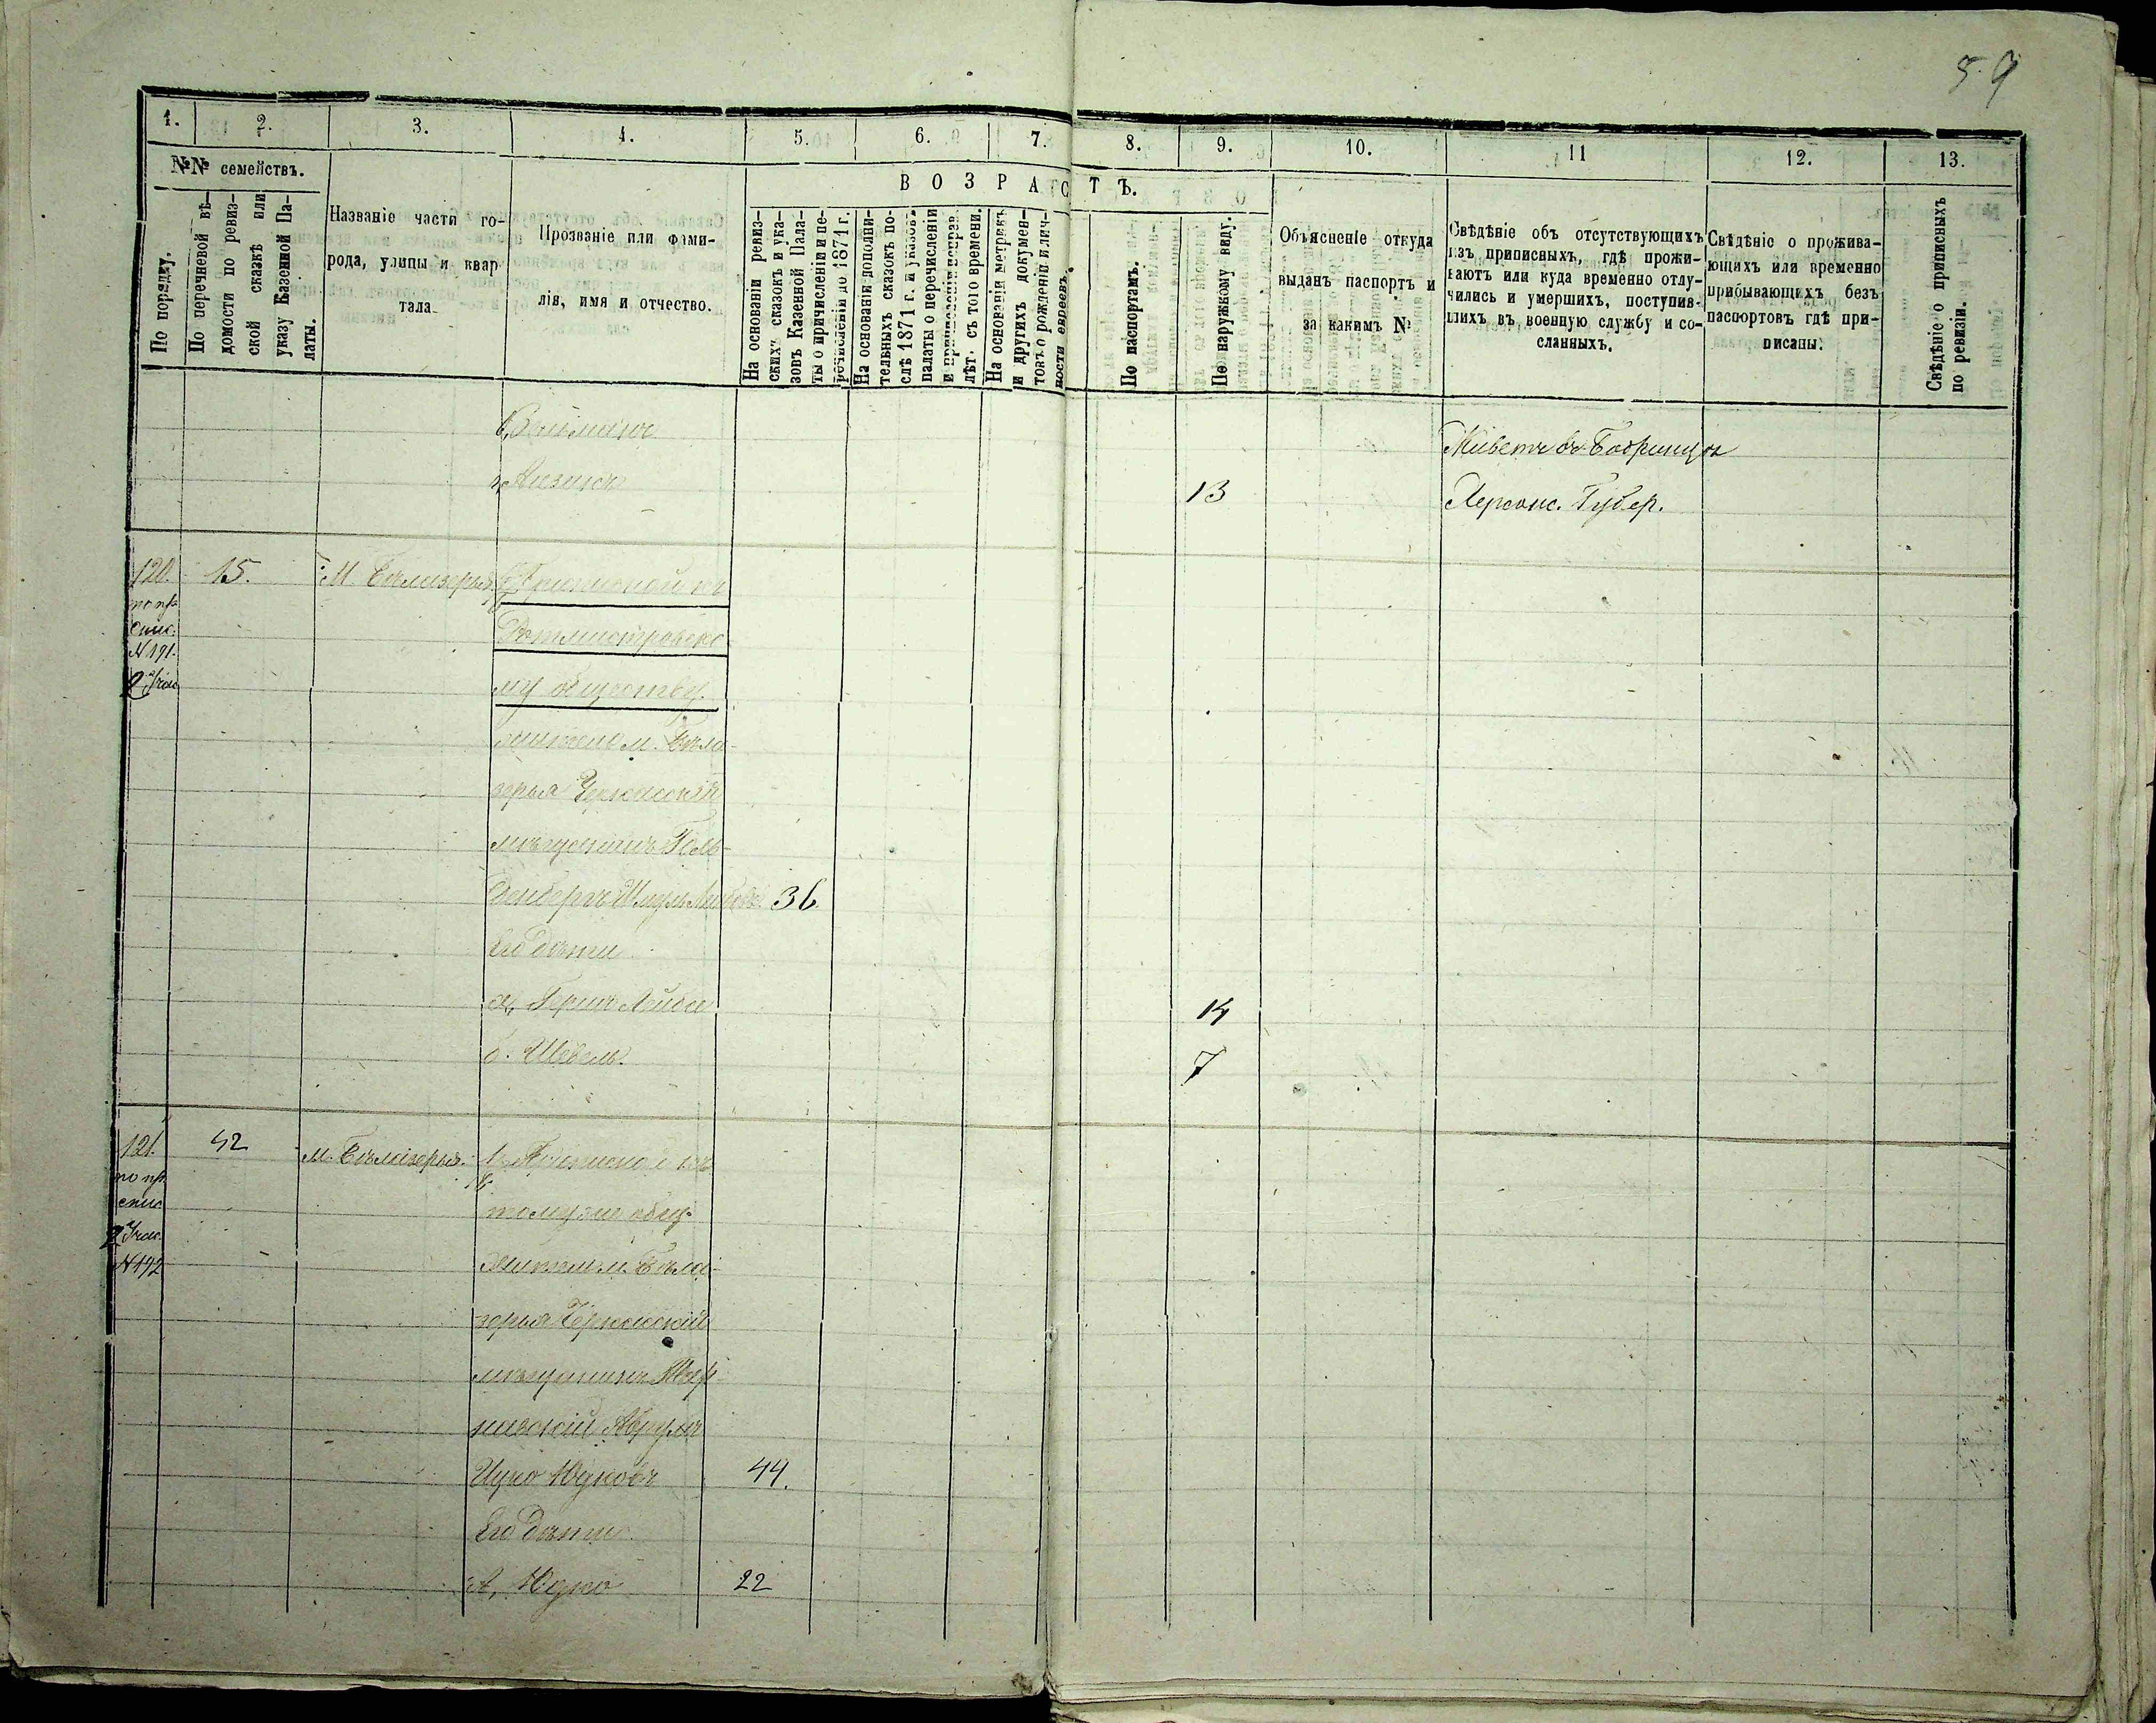 59
1. 2. 3. 4. 5. 6. 7. 8. 9. 10. 11 12. 13.
№№ семействъ.
По порядку.
По перечневой вѣ-
домости по ревиз-
ской сказкѣ или
указу Казенной Па-
латы.
Названіе части го-
рода, улицы и квар
тала
Прозваніе или фами-
лія, имя и отчество.
ВОЗРАСТЪ.
На основаніи ревиз-
скихъ сказокъ и ука-
зовъ Казенной Пала-
ты о причисленіи и пе-
речисленіи до 1871 г.
На основаніи дополни-
тельныхъ сказокъ по-
слѣ 1871 г. и указовъ
палаты о перечисленіи
и лѣтъ съ того времени.
На основаніи метрикъ
и другихъ докумен-
товъ о рожденіи и лич-
ности евреевъ.
По паспортамъ.
По наружному виду.
Объясненіе откуда
выданъ паспортъ и
за какимъ №
Свѣдѣніе объ отсутствующихъ
изъ приписныхъ, гдѣ прожи-
ваютъ или куда временно отлу-
чились и умершихъ, поступив-
шихъ въ военную службу и со-
сланныхъ.
Свѣдѣніе о прожива-
ющихъ или временно
прибывающихъ безъ
паспортовъ гдѣ при-
писаны.
Свѣдѣніе о приписныхъ
по ревизіи.
Живетъ въ Бобринцѣ
13 Херсонс. Губер.
120. 15. М. Бѣлозерья Приписной къ
по пр.
спис.
N 191.
2 Учас
Ротмистровско
му обществу.
житель м. Бѣло-
зерья Черкасскій
мѣщанинъ Голь-
денбергъ Шмуль Лейбовъ 36.
Его дѣти
а, Гершъ Лейба 14
б. Шевель. 7
121. 42 м. Бѣлозерья. Приписной къ
по пр.
спис
2 Учас.
N 192
тому же общ.
житель м. Бѣло-
зерья Черкасскій
мѣщанинъ
Аврумъ
Ицко Юдковъ 44.
Его дѣти
а, Юдко 22